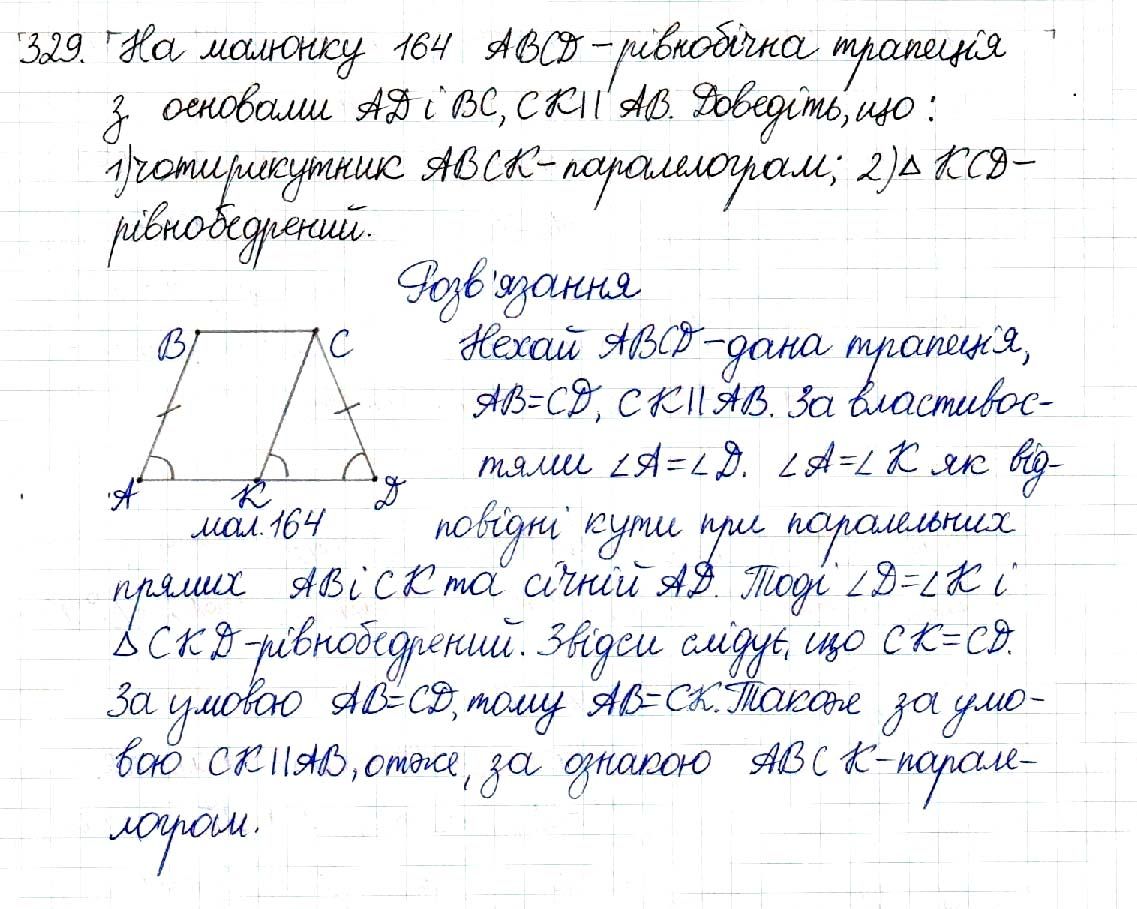 329. На малюнку 164 ABCD - рівнобічна трапеція
з основами AD і BC, CK || AB. Доведіть, що:
1) чотирикутник ABCK - паралелограм; 2) △ KCD -
рівнобедрений.
Розв'язання
B C
Нехай ABCD - дана трапеція,
AB=CD, CK || AB. За властивос-
тями ∠A=∠D. ∠A=∠K як від-
A K D
мал. 164
повідні кути при паралельних
прямих AB і CK та січній AD. Тоді ∠D=∠K і
△ CKD - рівнобедрений. Звідси слідує, що CK=CD.
За умовою AB=CD, тому AB=CK. Також за умо-
вою CK || AB, отже, за ознакою ABCK - парале-
лограм.